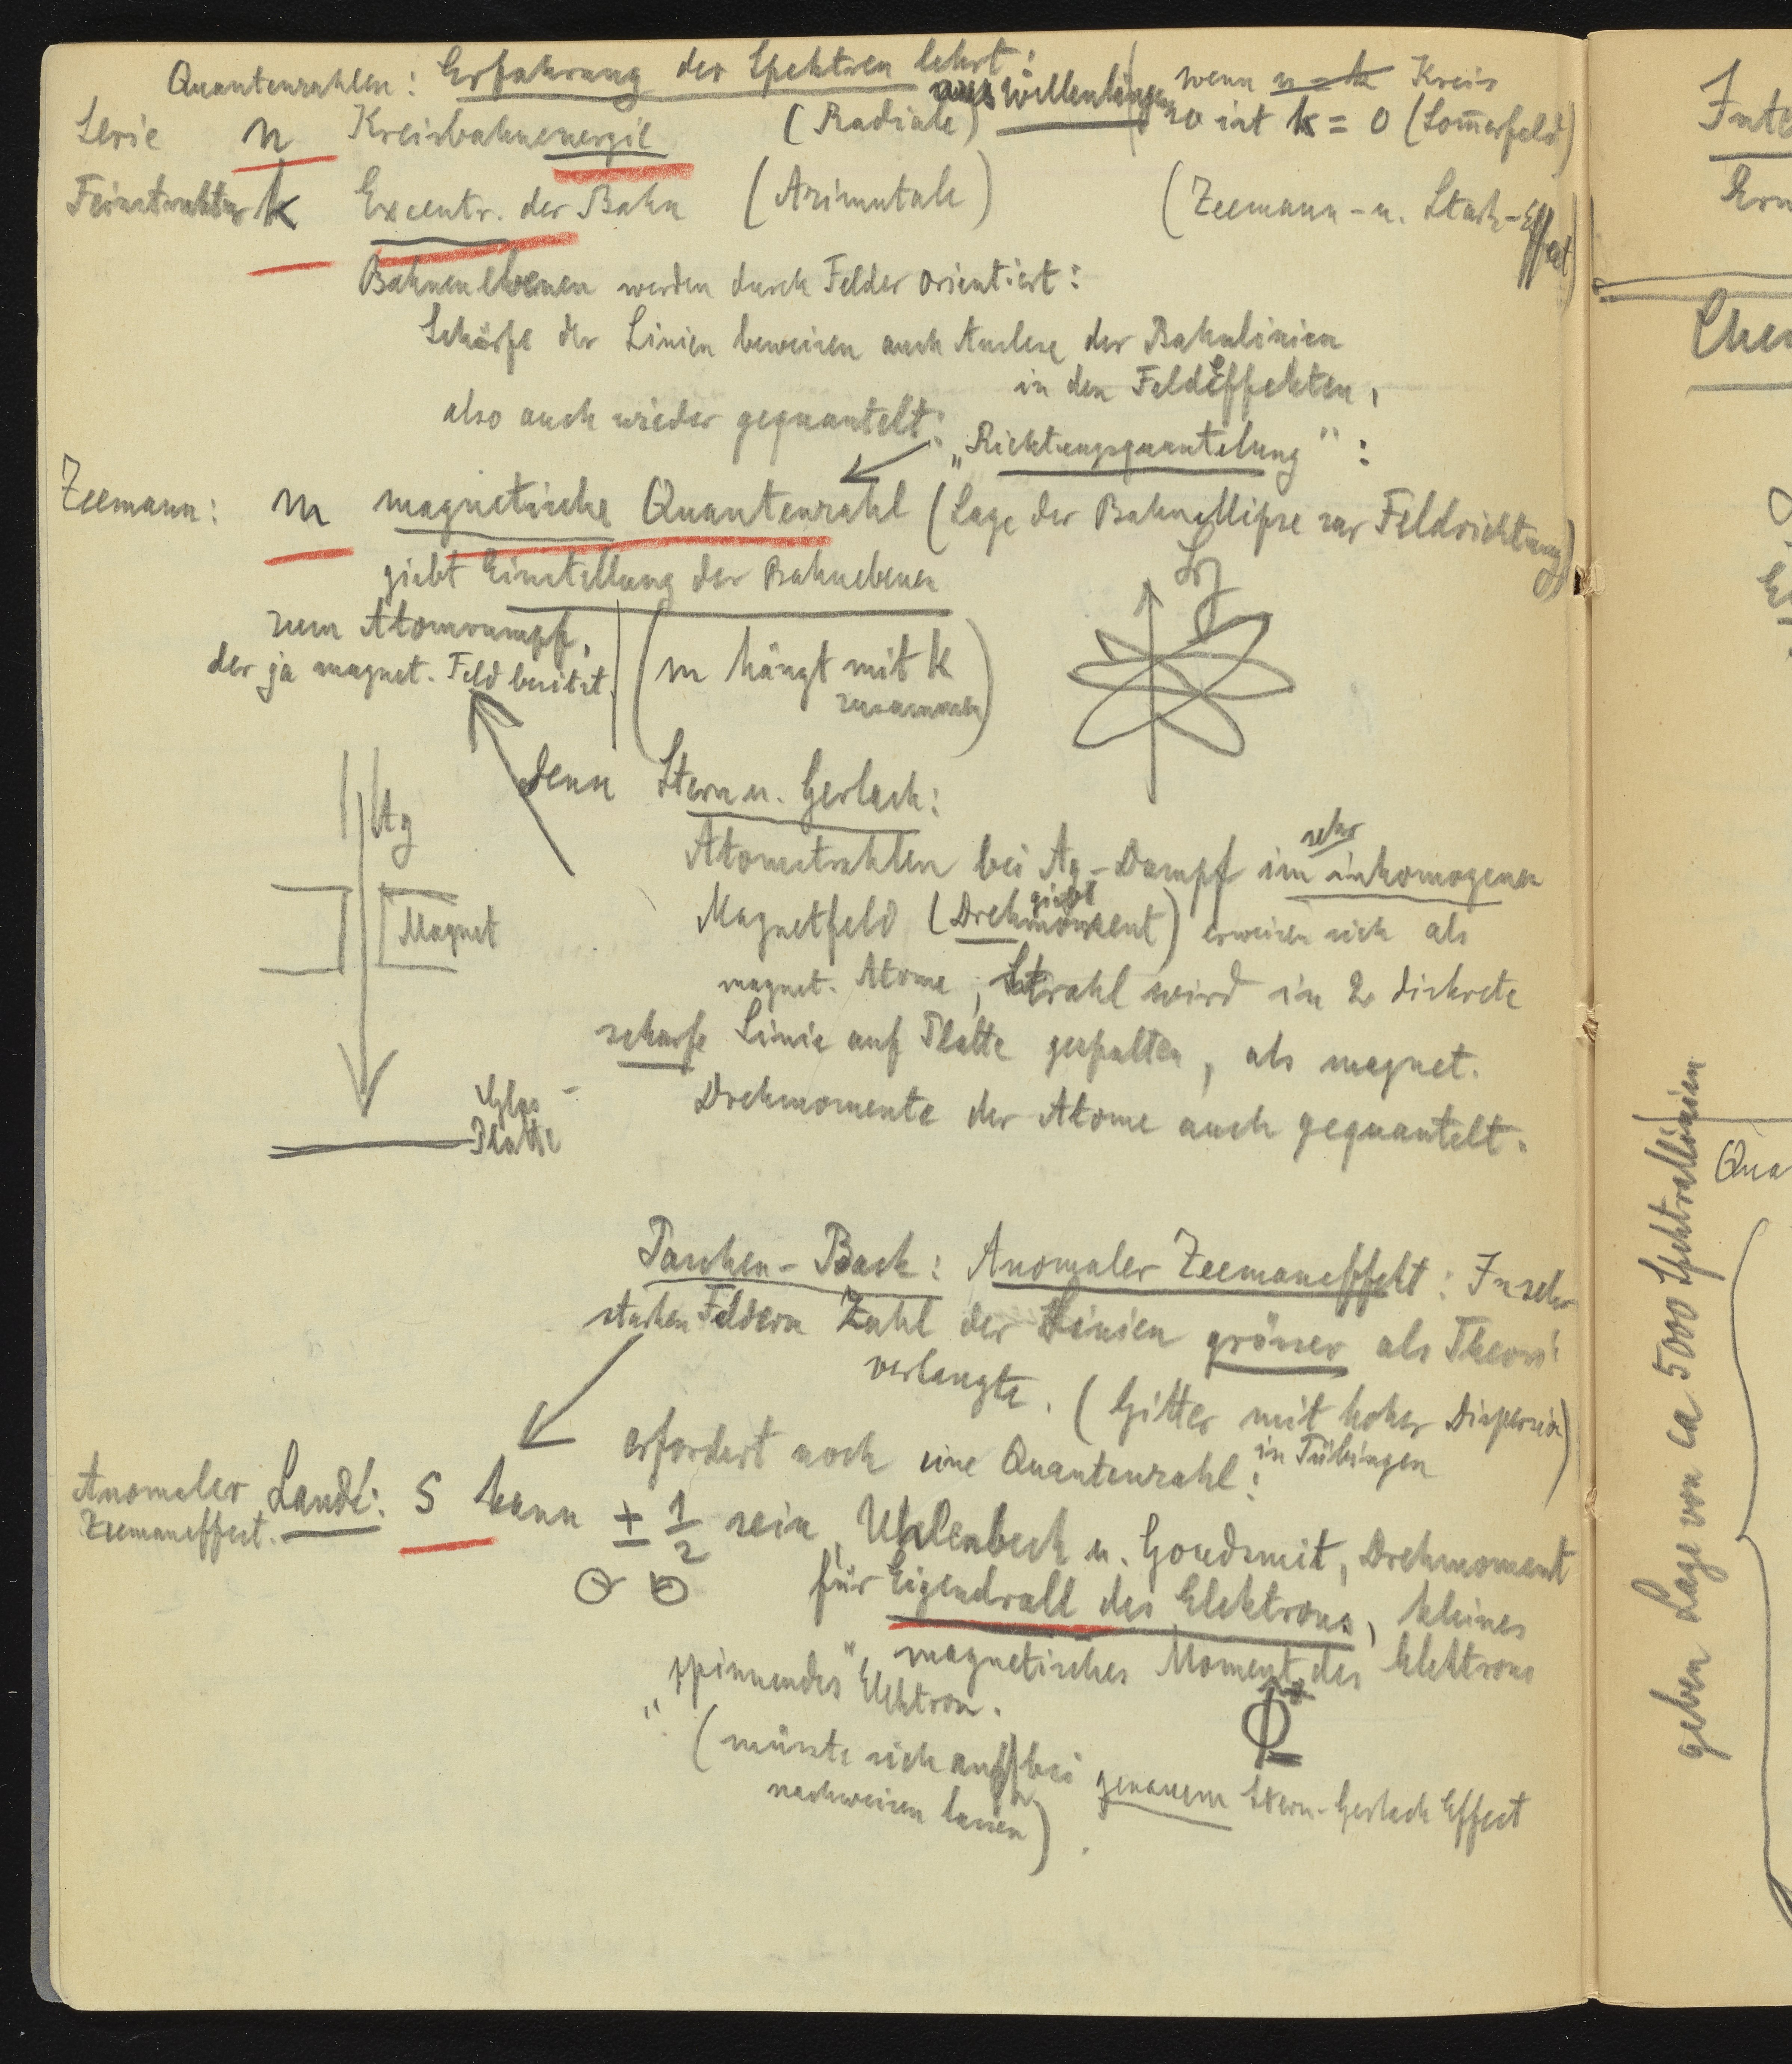 Quantenzahlen: Erfahrung der Spektren lehrt:
aus Wellenlängen
wenn n = k Kreis
Serie n Kreisbahnenergie (Radiale) so ist k = 0 (Som̄erfeld)
Feinstruktur k Excentr. der Bahn (Azimutale) (Zeemann- u. Stark-Effect)
Bahnenebenen werden durch Felder orientiert:
Schärfe der Linien beweisen auch Auslese der Bahnlinien
in den Feldeffekten,
also auch wieder gequantelt:
„Richtungsquantelung":
Zeemann: m magnetische Quantenzahl (Lage der Bahnellipse zur Feldrichtung)
giebt Einstellung der Bahnebenen
zum Atomrumpf,
der ja magnet. Feld besitzt.
(m hängt mit k
zusammen)
denn Stern u. Gerlach:
Ag
Magnet
Glas-
Platte
Atomstrahlen bei Ag-Dampf im sehr inhomogenen
Magnetfeld (giebt Drehmoment) erweisen sich als
magnet. Atome, Strahl wird in 2 diskrete
scharfe Linie auf Platte gespalten, als magnet.
Drehmomente der Atome auch gequantelt.
Paschen-Back: Anomaler Zeemaneffekt: In sehr
starken Feldern Zahl der Linien grösser als Theori
verlangte. (Gitter mit hoher Dispersion)
in Tübingen
erfordert noch eine Quantenzahl:
Anomaler
Zeemaneffect.
Landé: s kann ± 1/2 sein, Uhlenbeck u. Goudsmit, Drehmoment
für Eigendrall des Elektrons, kleines
magnetisches Moment des Elektrons
„spinnendes" Elektron.
(müsste sich auch bei genauem Stern-Gerlach Effect
nachweisen lassen).
geben Lage von ca 5000 Spektrallinien
Qua